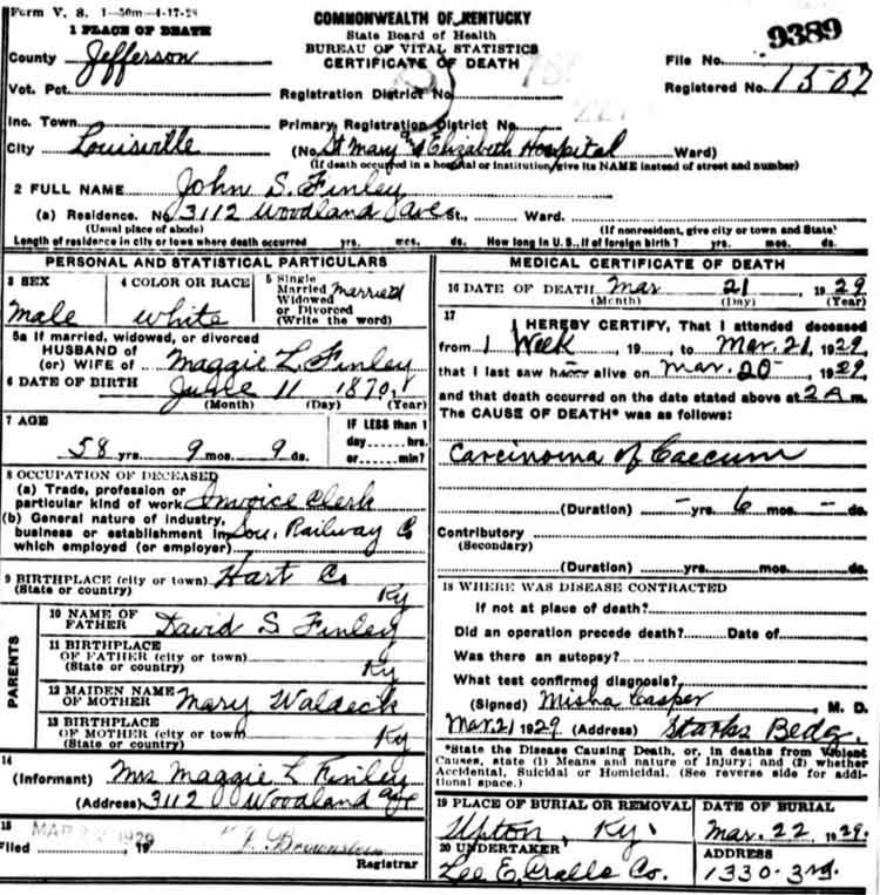 Form V. S. 1-50m-4-17-28
COMMONWEALTH OF KENTUCKY
State Board of Health
BUREAU OF VITAL STATISTICS
CERTIFICATE OF DEATH
9389
File No.
Registered No. 1507
1 PLACE OF DEATH
County Jefferson
Vot. Pct.
Registration District No
Inc. Town
Primary Registration District No
City Louisville
(No. St Mary and Elizabeth Hospital Ward)
(If death occurred in a hospital or institution, give its NAME instead of street and number)
2 FULL NAME John S. Finley
(a) Residence. No 3112 Woodland Ave St., Ward.
(Usual place of abode) (If nonresident, give city or town and State)
Length of residence in city or town where death occurred yrs. mos. ds. How long in U. S., if of foreign birth? yrs. mos. ds.
PERSONAL AND STATISTICAL PARTICULARS
3 SEX
Male
4 COLOR OR RACE
white
5 Single
Married
Widowed
or Divorced
(Write the word)
Married
5a If married, widowed, or divorced
HUSBAND of
(or) WIFE of Maggie L. Finley
6 DATE OF BIRTH June 11 1870
(Month) (Day) (Year)
7 AGE
58 yrs. 9 mos. 9 ds.
IF LESS than 1
day hrs.
or min?
8 OCCUPATION OF DECEASED
(a) Trade, profession or
particular kind of work Invoice Clerk
(b) General nature of industry,
business or establishment in Lou. Railway Co
which employed (or employer)
9 BIRTHPLACE (city or town) Hart Co
(State or country) Ky
PARENTS
10 NAME OF
FATHER David S Finley
11 BIRTHPLACE
OF FATHER (city or town)
(State or country) Ky
12 MAIDEN NAME
OF MOTHER Mary Waldeck
13 BIRTHPLACE
OF MOTHER (city or town
(State or country) Ky
14
(Informant) Mrs Maggie L Finley
(Address) 3112 Woodland Ave
15
Filed MAR 1929 19
Registrar
MEDICAL CERTIFICATE OF DEATH
16 DATE OF DEATH Mar 21, 1929
(Month) (Day) (Year)
17
I HEREBY CERTIFY, That I attended deceased
from 1 Week, 19, to Mar. 21, 1929,
that I last saw h alive on Mar. 20, 1929,
and that death occurred on the date stated above at 2 A m.
The CAUSE OF DEATH* was as follows:
Carcinoma of Caecum
(Duration) - yrs. 6 mos. - ds.
Contributory
(Secondary)
(Duration) yrs. mos. ds.
18 WHERE WAS DISEASE CONTRACTED
If not at place of death?
Did an operation precede death? Date of
Was there an autopsy?
What test confirmed diagnosis?
(Signed) Misha Casper M. D.
Mar. 21 1929 (Address) Starks Bldg.
*State the Disease Causing Death, or, in deaths from Violent
Causes, state (1) Means and nature of Injury; and (2) whether
Accidental, Suicidal or Homicidal. (See reverse side for addi-
tional space.)
19 PLACE OF BURIAL OR REMOVAL
Upton, Ky.
DATE OF BURIAL
Mar. 22, 1929.
20 UNDERTAKER
Lee E. Cralle Co.
ADDRESS
1330-3rd.